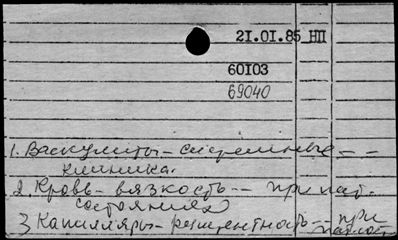 21.01.85 НП
60103
69040
1. Васкулиты - системные - -
клиника.
2. Кровь - вязкость -- при пат.
состояниях
3 Капилляры - резистентность -- при
патол.